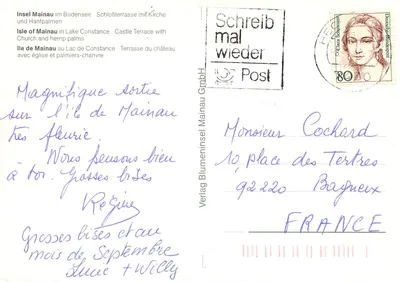 Insel Mainau im Bodensee Schloßterrasse mit Kirche
und Hanfpalmen
Isle of Mainau in Lake Constance Castle Terrace with
Church and hemp palms
Ile de Mainau au Lac de Constance Terrasse du château
avec église et palmiers-chanvre
Magnifique sortie
sur l'île de Mainau
très fleurie.
Nous pensons bien
à toi. Grosses bises
Régine
Grosses bises et au
mois de Septembre
+ Willy
Verlag Blumeninsel Mainau GmbH
Schreib
mal
wieder
Post
80
Monsieur Cochard
10 place des Tertres
92220 Bagneux
FRANCE